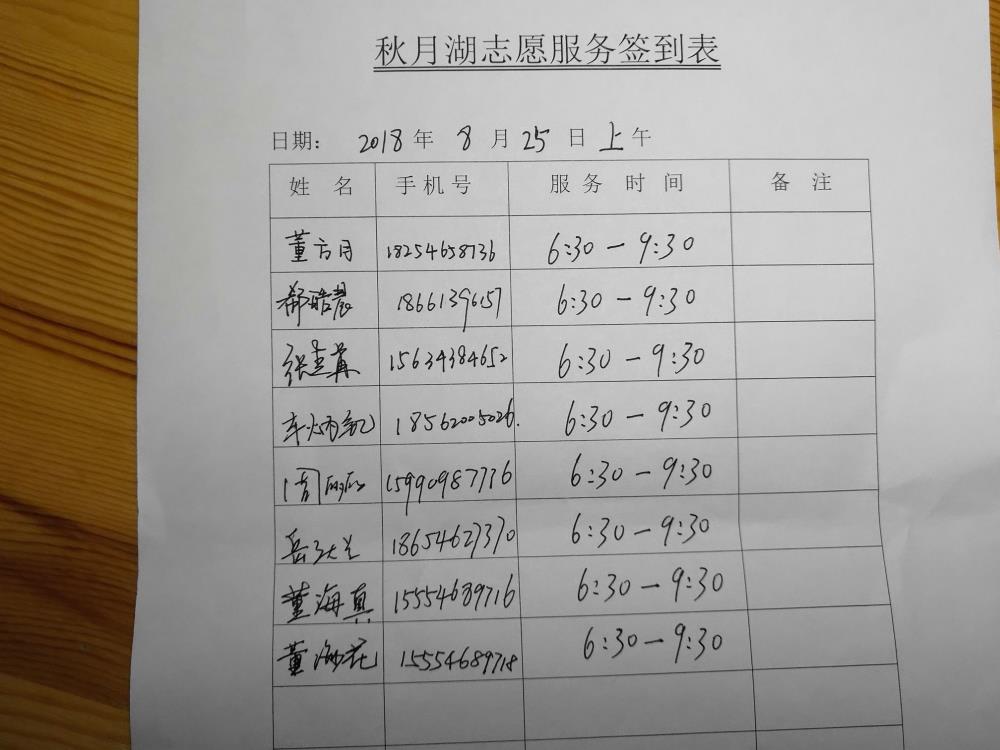 秋月湖志愿服务签到表
日期： 2018 年 8 月 25 日 上午
姓 名 手机号 服务 时间 备 注
董方月 18254658736 6:30—9:30
郝皓晨 18661396157 6:30—9:30
张 15634384652 6:30—9:30
车炳凯 18562005026. 6:30—9:30
周 15990987776 6:30—9:30
岳 18654627370 6:30—9:30
董海真 15554689716 6:30—9:30
董海花 15554689718 6:30—9:30